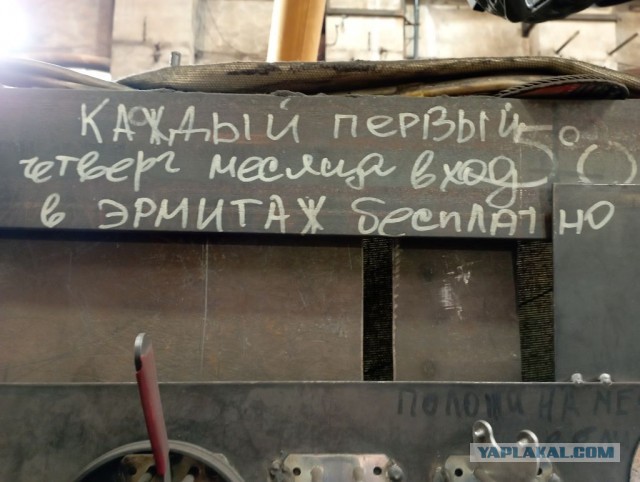 КАЖДЫЙ ПЕРВЫЙ
четверг месяца вход
в ЭРМИТАЖ бесплатно
50
ПОЛОЖИ НА
YAPLAKAL.COM